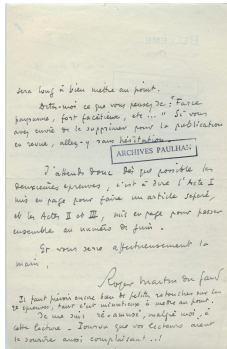 sera long à bien mettre au point.
Dites-moi ce que vous pensez de : "Farce
paysanne, fort facétieux, etc..." Si vous
avez envie de le supprimer pour la publication
en revue, allez-y sans hésitation.
ARCHIVES PAULHAN
J'attends donc dès que possible les
deuxièmes épreuves, c'est à dire l'Acte I
mis en page pour faire un article séparé,
et les Actes II et III, mis en page pour passer
ensemble en numéro de fin.
Et vous serre affectueusement la
main,
Roger Martin du Gard
Il faut prévoir encore bien de petites retouches sur les
2e épreuves, tant c'est minutieux à mettre au point.
Je me suis réamusé, malgré moi, à
cette lecture. Pourvu que vos lecteurs aient
le sourire aussi complaisant...!